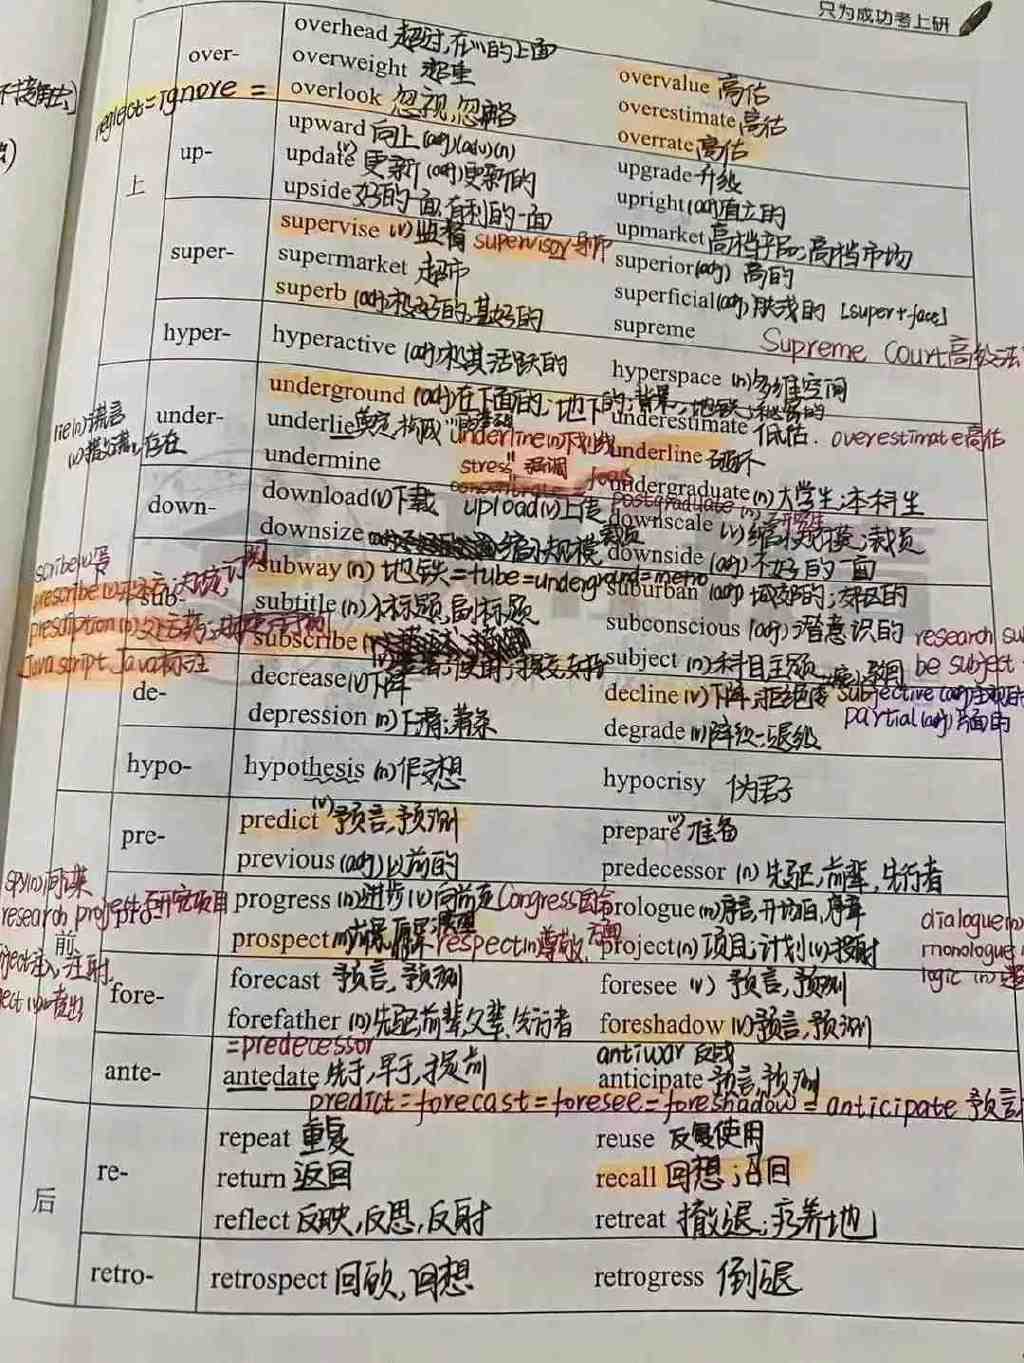 只为成功考上研
over-
overhead 超过,在…的上面
overweight 超重
overvalue 高估
neglect=ignore = overlook 忽视,忽略
overestimate 高估
overrate 高估
上
up-
upward 向上 (adj)(adv)(n)
update (v) 更新 (adj)更新的
upgrade 升级
upside 好的一面,有利的一面
upright (adj)直立的
upmarket 高档产品;高档市场
super-
supervise (v) 监督 supervisor 导师
superior (adj) 高的
supermarket 超市
superficial (adj) 肤浅的 [super+face]
superb (adj)极好的,甚好的
supreme
Supreme Court 高级法
hyper-
hyperactive (adj)极其活跃的
hyperspace (n)多维空间
under-
underground (adj)在下面的;地下的
lie (n)谎言
underlie
underline
underestimate 低估. overestimate 高估
存在
undermine
stress 强调
underline 破坏
undergraduate (n) 大学生;本科生
postgraduate (n)
down-
download (v)下载 upload (v)上传
downscale (v)缩减规模;裁员
downsize 缩小规模 裁员
downside (adj) 不好的一面
scribe (v)写
prescribe (v)
sub-
subway (n) 地铁=tube=underground=metro
suburban (adj) 城郊的;郊区的
prescription (n)处方药
subtitle (n)小标题,副标题
subconscious (adj)潜意识的
Javascript Java标注
subscribe
subject (n)科目主题
be subject
de-
decrease (v)下降
decline (v)下降;拒绝
subjective (adj)主观的
partial (adj)片面的
depression (n)下滑;萧条
degrade (v)降级;退级
hypo-
hypothesis (n)假设想
hypocrisy 伪君子
前
pre-
predict (v) 预言,预测
prepare (v) 准备
previous (adj)以前的
predecessor (n) 先驱,前辈,先行者
spy (n)间谍
research project 研究项目
pro-
progress (n)进步 (v)向前进 Congress 国会
prologue (n)序言,开场白,序章
dialogue (n)
prospect respect (n)尊敬,方面
project (n) 项目;计划 (v)投射
monologue
logic (n)
注入,注射
fore-
forecast 预言,预测
foresee (v) 预言,预测
forefather (n)先驱,前辈,父辈,先行者
foreshadow (v)预言,预测
=predecessor
antiwar 反战
ante-
antedate 先于,早于,提前
anticipate 预言,预测
predict=forecast=foresee=foreshadow=anticipate 预言
后
re-
repeat 重复
reuse 反复使用
return 返回
recall 回想;召回
reflect 反映,反思,反射
retreat 撤退;疗养地
retro-
retrospect 回顾,回想
retrogress 倒退